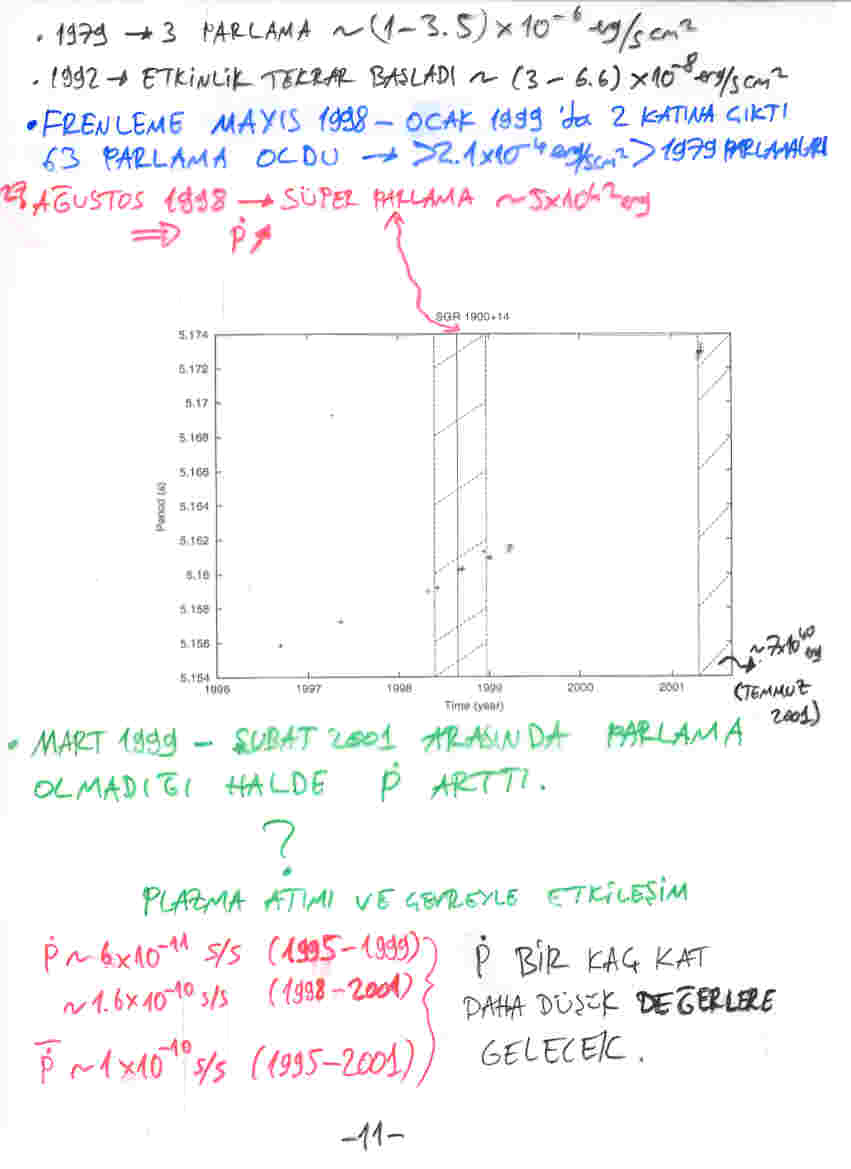 . 1979 → 3 PARLAMA ~(1-3.5)×10⁻⁶ erg/s cm²
. 1992 → ETKİNLİK TEKRAR BAŞLADI ~ (3-6.6)×10⁻⁸ erg/s cm²
• FRENLEME MAYIS 1998 - OCAK 1999 'da 2 KATINA ÇIKTI
63 PARLAMA OLDU → >2.1×10⁻⁴ erg/s cm² > 1979 PARLAMALARI
27 AĞUSTOS 1998 → SÜPER PARLAMA ~5×10⁴² erg
⇒ Ṗ ↗
SGR 1900+14
5.174
5.172
5.17
5.168
5.166
5.164
5.162
5.16
5.158
5.156
5.154
Period (s)
1996 1997 1998 1999 2000 2001
Time (year)
~7×10⁴⁰ erg
(TEMMUZ
2001)
• MART 1999 - ŞUBAT 2001 ARASINDA PARLAMA
OLMADIĞI HALDE Ṗ ARTTI.
?
PLAZMA ATIMI VE ÇEVREYLE ETKİLEŞİM
Ṗ ~ 6×10⁻¹¹ s/s (1995-1999)
~ 1.6×10⁻¹⁰ s/s (1998-2001)
Ṗ̄ ~ 1×10⁻¹⁰ s/s (1995-2001)
Ṗ BİR KAÇ KAT
DAHA DÜŞÜK DEĞERLERE
GELECEK.
-11-